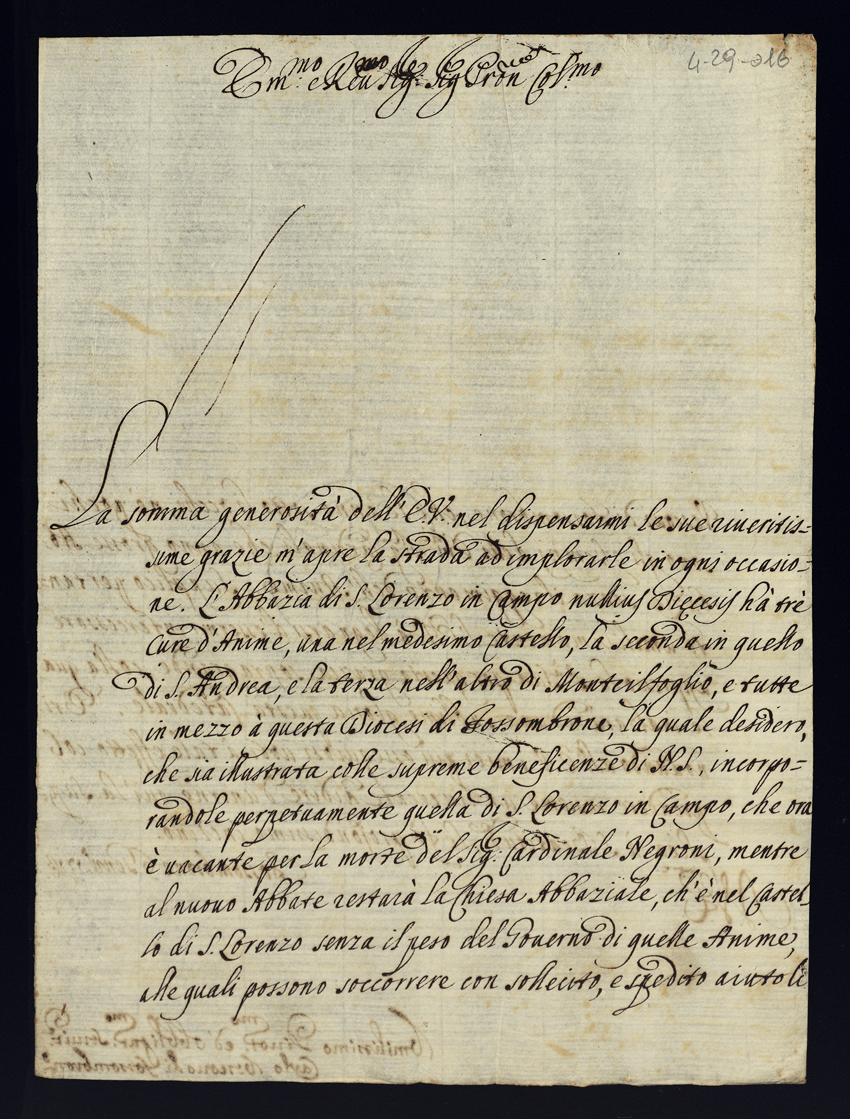 4-29-016
Em.mo e Reu.mo Sig.r Sig.r Pron Col.mo
La somma generosità dell'E.V. nel dispensarmi le sue riueritis=
sime grazie m'apre la strada ad implorarle in ogni occasio=
ne. L'Abbazia di S. Lorenzo in Campo nullius Dięcesis hà trè
Cure d'Anime, una nel medesimo Castello, la seconda in quello
di S. Andrea, e la terza nell'altro di Montevilfoglio, e tutte
in mezzo à questa Diocesi di Fossombrone, la quale desidero,
che sia illustrata colle supreme beneficenze di N.S., incorpo=
randole perpetuamente quella di S. Lorenzo in Campo, che ora
è uacante per la morte del Sig.r Cardinale Negroni, mentre
al nuouo Abbate restarà la Chiesa Abbaziale, ch'è nel Castel=
lo di S. Lorenzo senza il peso del Gouerno di quelle Anime,
alle quali possono soccorrere con sollecito, e spedito aiuto li